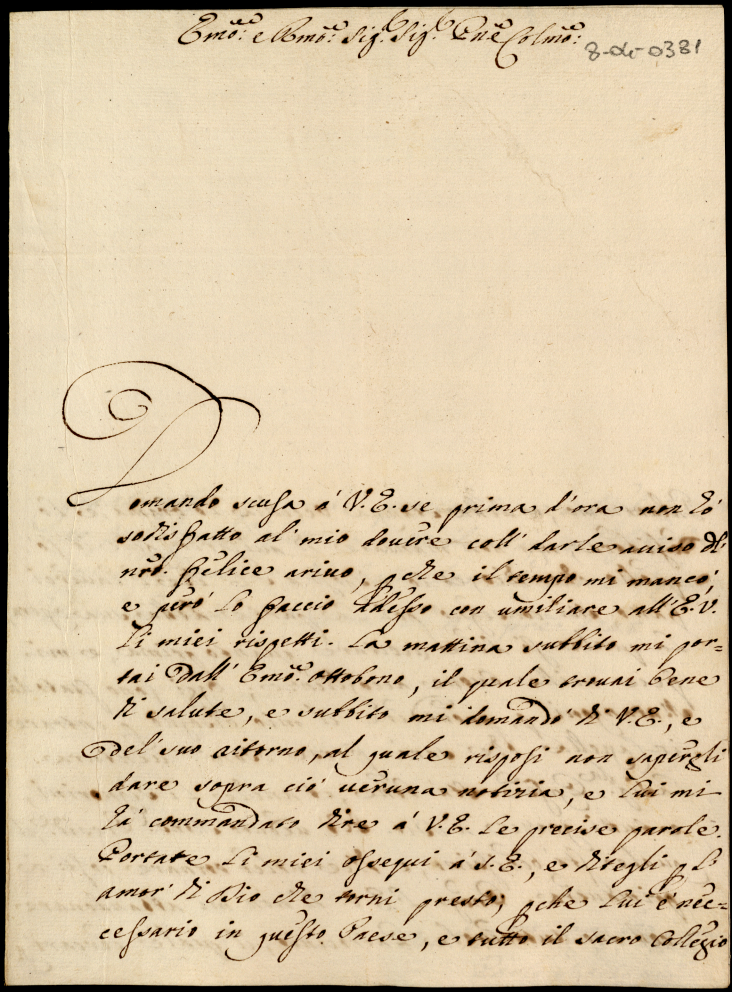 Emo: e Rmo: Sig:r Sig:r Pne Colmo:
8-de-0381
Domando scusa á V. E. se prima d'ora non hó
sodisfatto al' mio dovere coll' darle aviso di
nro. felice arivo, pche il tempo mi mancó,
e peró lo faccio adesso con umiliare all' E. V.
li miei rispetti. La mattina subbito mi por=
tai dall' Emo: Ottobono, il quale trovai bene
di salute, e subbito mi domandó di V. E., e
del' suo ritorno, al quale risposi non sapergli
dare sopra ció veruna notizia, e lui mi
há commandato dire á V. E. le precise parole.
Portate li miei ossequi á S. E., e ditegli p l'
amor' di Dio che torni presto, pche lui é nec=
cessario in questo Paese, e tutto il sacro Collegio